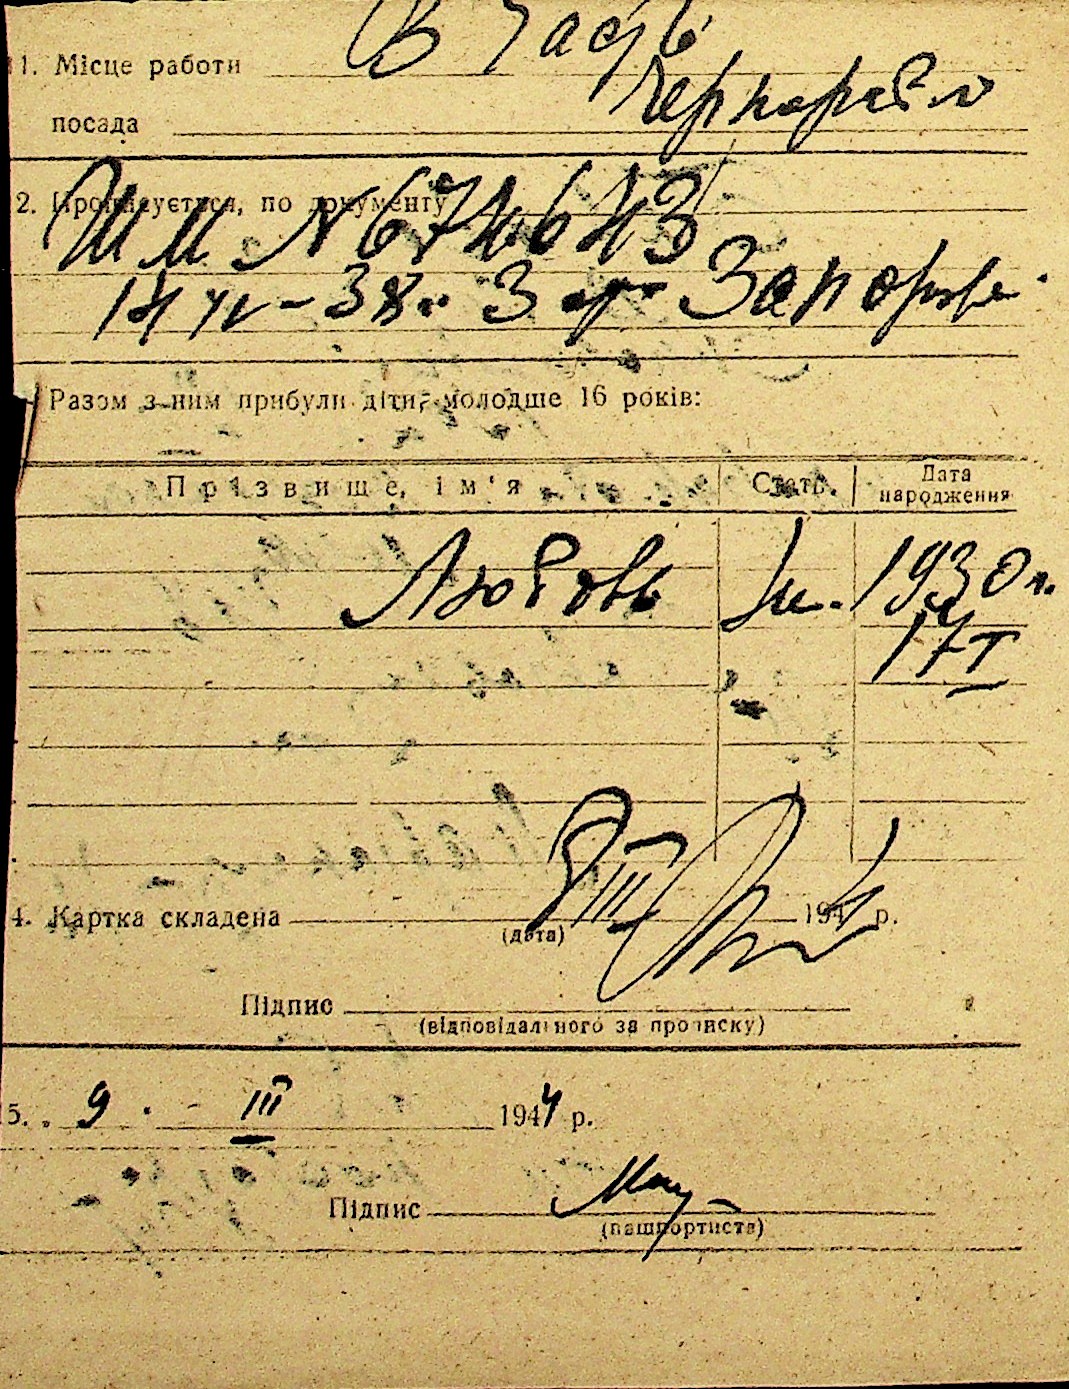 11. Місце работи В 
посада Чернораб
2. Прописується, по документу
ШМ № 674643
Запорож.
Разом з ним прибули діти, молодше 16 років:
Прізвище, ім'я Стать. Дата народження
Любовь ж. 1930 г.
17 I
4. Картка складена 8 III 1941 р.
(дата)
Підпис
(відповідального за прописку)
15. 9 · - III 1944 р.
Підпис
(пашпортиста)